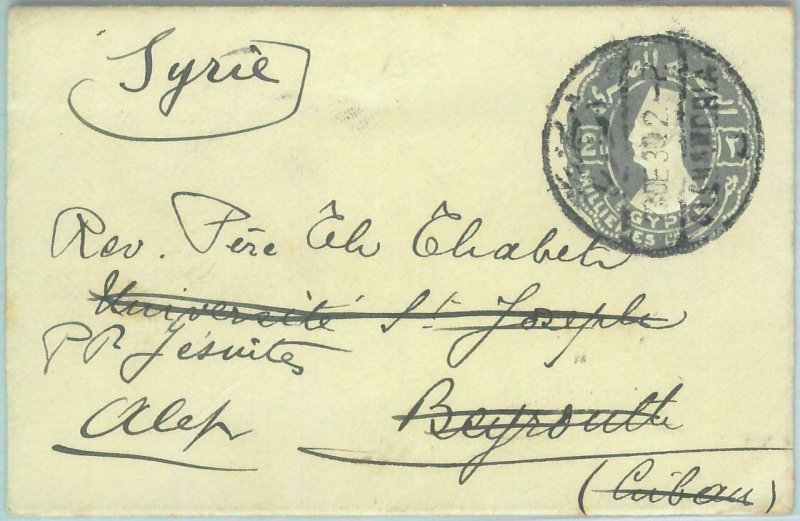 Syrie
Rev. Père Eli Chabeh
Université St. Joseph
PP. Jésuites
Alep
Beyrouth
(Liban)
EGYPT
MILLIEMES
ALEXANDRIA
DE 30